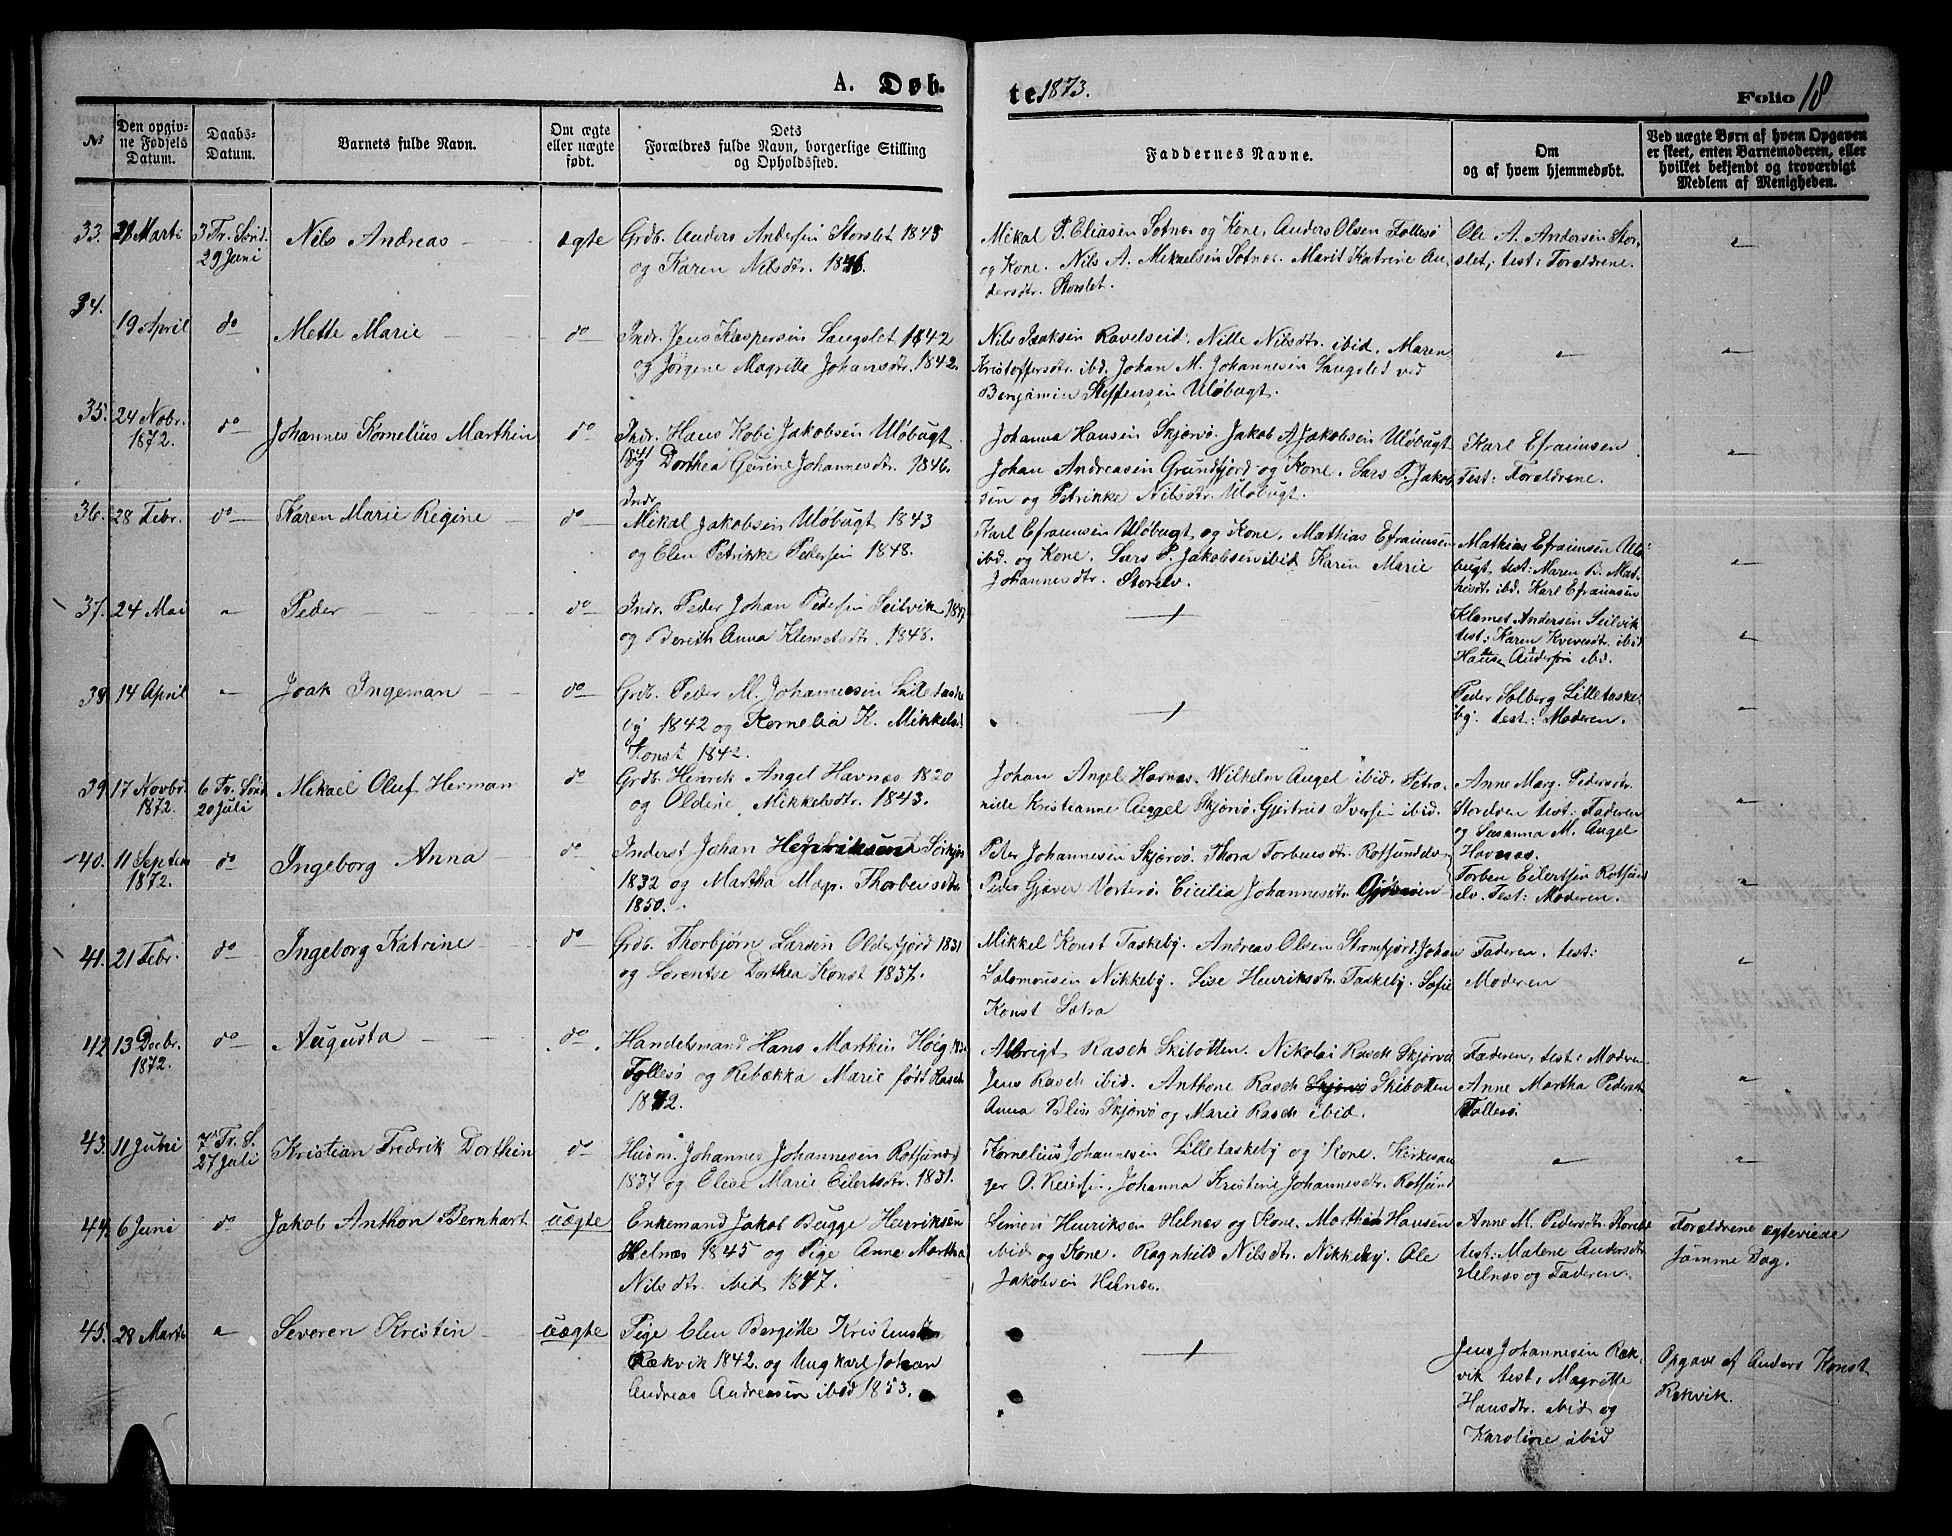 A. Døb-
te 1873.
Folio 18
№
Den opgiv-
ne Fødsels
Datum.
Daabs-
Datum.
Barnets fulde Navn.
Om ægte
eller uægte
født.
Dets
Forældres fulde Navn, borgerlige Stilling
og Opholdssted.
Faddernes Navne.
Om
og af hvem hjemmedøbt.
Ved uægte Børn af hvem Opgaven
er skeet, enten Barnemoderen, eller
hvilket bekjendt og troværdigt
Medlem af Menigheden.
33. Marts
3 Tr. Sønd.
29 Juni
Nils Andreas
ægte
Grdb. Anders Andersen Storslet 1843
og Karen Nilsdtr. 1846.
Mikal P. Eliasen Sotnæs og Kone, Anders Olsen Follesö
og Kone. Nils A. Mikaelsen Sotnæs. Marit Katrine An-
dersdtr. Storslet.
Ole A. Andersen Stor-
slet, test: Forældrene.
34.
19 April
do
Mette Marie
do
Indr. Jens Kaspersen Langslet 1842
og Jørgine Magrette Johansdtr. 1842.
Nils Isaksen Ravelseid. Nille Nilsdtr. ibid. Maren
Kristoffersdtr. ibd. Johan M. Johannesen Langslet ved
Benjamin Steffensen Uløbugt.
35. 24 Nobr.
1872.
do
Johannes Kornelius Marthin
do
Indr. Hans Kobi Jakobsen Uløbugt
1841 og Dorthea Gurine Johannesdtr. 1846.
Johanna Hansen Skjærvø. Jakob A Jakobsen Uløbugt
Johan Andreasen Grundfjord og Kone. Lars P. Jakob-
sen og Petrikke Nilsdtr. Uløbugt.
Karl Efraimsen
Test: Forældrene.
36. 28 Febr.
do
Karen Marie Regine
do
Indr.
Mikal Jakobsen Uløbugt 1843
og Elen Petrikke Pedersen 1848.
Karl Efraimsen Uløbugt og Kone. Mathias Efraimsen
ibd. og Kone. Lars P. Jakobsen ibid Karen Marie
Johannesdtr. Storelv.
Mathias Efraimsen Ulø-
bugt, test: Maren B. Mat-
hisdt. ibd. Karl Efraimsen
37. 24 Mai
Peder
do
Indr. Peder Johan Pedersen Seilvik
og Bereth Anna Klemetsdtr. 1848.
Klemet Andersen Seilvik
test: Karen ibid
Andersen ibid.
38. 14 April
Joak Ingeman
do
Grdb. Peder M. Johannesen Lilletaske
by 1842 og Kornelia K. Mikkels.
Konst 1842.
Peder Solberg Lilletaske-
by. test: Moderen.
39. 17 Novbr.
1872.
6 Tr. Sønd.
20 Juli
Mikael Oluf Herman
do
Grdb. Henrik Angel Havnæs 1820
og Oldine Mikkelsdtr. 1843.
Johan Angel Havnæs. Wilhelm Angel ibid. Petro-
nille Kristianne Angel Skjærvø. Gjertrud Iversen ibid.
Anne Marg. Pedersdtr.
test: Faderen
og Susanna M. Angel
Havnæs.
40. 11 Septem
1872.
do
Ingeborg Anna
do
Inderst Johan Hendriksen Sørkjos
1832 og Martha Magr. Thorbensdtr.
1850.
Peter Johannesen Skjærvø. Thora Torbensdtr. Rotsundelv
Peder Gjæver Vorterø. Cicilia Johannesdtr.
Torben Eilertsen Rotsund
elv. Test: Moderen.
41. 21 Febr.
do
Ingeborg Katrine
do
Grdb. Thorbjørn Larsen Olderfjord 1831
og Sørentse Dorthea Konst 1837.
Mikkel Konst Taskeby. Andreas Olsen Strømfjord. Johan
Salomonsen Nikkeby. Lise Henriksdtr. Taskeby. Sofie
Konst Sætra
Faderen, test:
Moderen
42. 13 Decbr.
1872.
do
Augusta
do
Handelsmand Hans Marthin Høeg
Follesø og Rebekka Marie født Rasch
Albrigt Rasch Skibotten. Nikolai Rasch Skjærvø
Jens Rasch ibid. Anthone Rasch Skjervø Skibotten
Anna Blix Skjærvø og Marie Rasch ibid.
Faderen, test: Moderen
Anne Martha Pedersdtr
Follesø
43. 11 Juni
7 Tr. S.
27 Juli
Kristian Fredrik Dorthin
do
Husm. Johannes Johannesen Rotsund
1837 og Elise Marie Eilertsdtr. 1831.
Kornelius Johannesen Lilletaskeby og Kone. Kirkesan-
ger O. Reiersen. Johanna Kristine Johannesdtr. Rotsund
44. 6 Juni
do
Jakob Anthon Bernhart
uægte
Enkemand Jakob Bugge Henriksen
Helnæs 1845 og Pige Anne Martha
Nilsdtr. ibid 1847.
Simon Henriksen Helnæs og Kone. Marthin Hansen
ibid og Kone. Ragnhild Nilsdtr. Nikkeby. Ole
Jakobsen Helnæs.
Anne M. Pedersdtr.
test: Malene Andersdtr
Helnæs og Faderen.
Forældrene ægteviede
samme Dag.
45. 28 Marts
Severen Kristin
uægte
Pige Elen Bergitte Kristensdtr
Rækvik 1842. og Ungkarl Johan
Andreas Andreasen ibid 1853.
Jens Johannesen Ræk-
vik test, Magrette
Hansdtr. ibid og
Karoline ibid
Opgave af Anders Konst
Rekvik.